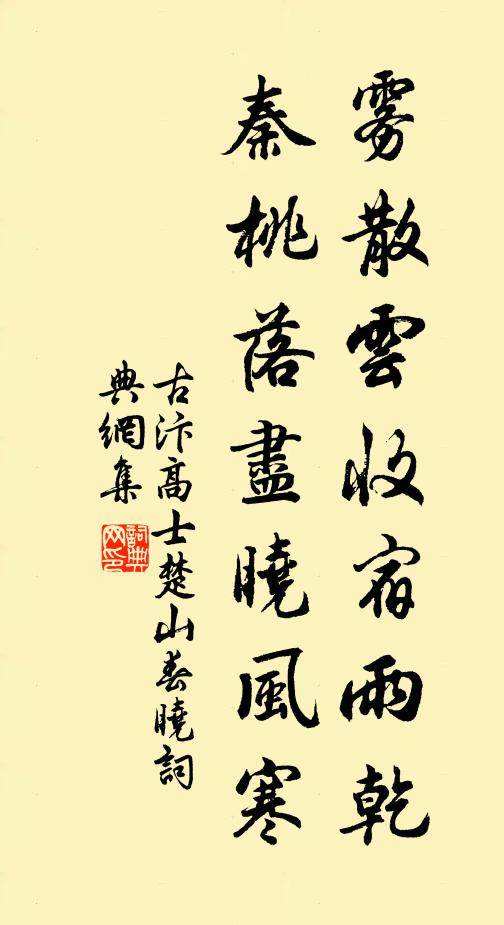 雾散雲收宿雨乾
秦桃落盡曉風寒
古汴高士楚山春曉詞
典網集
詞典網印